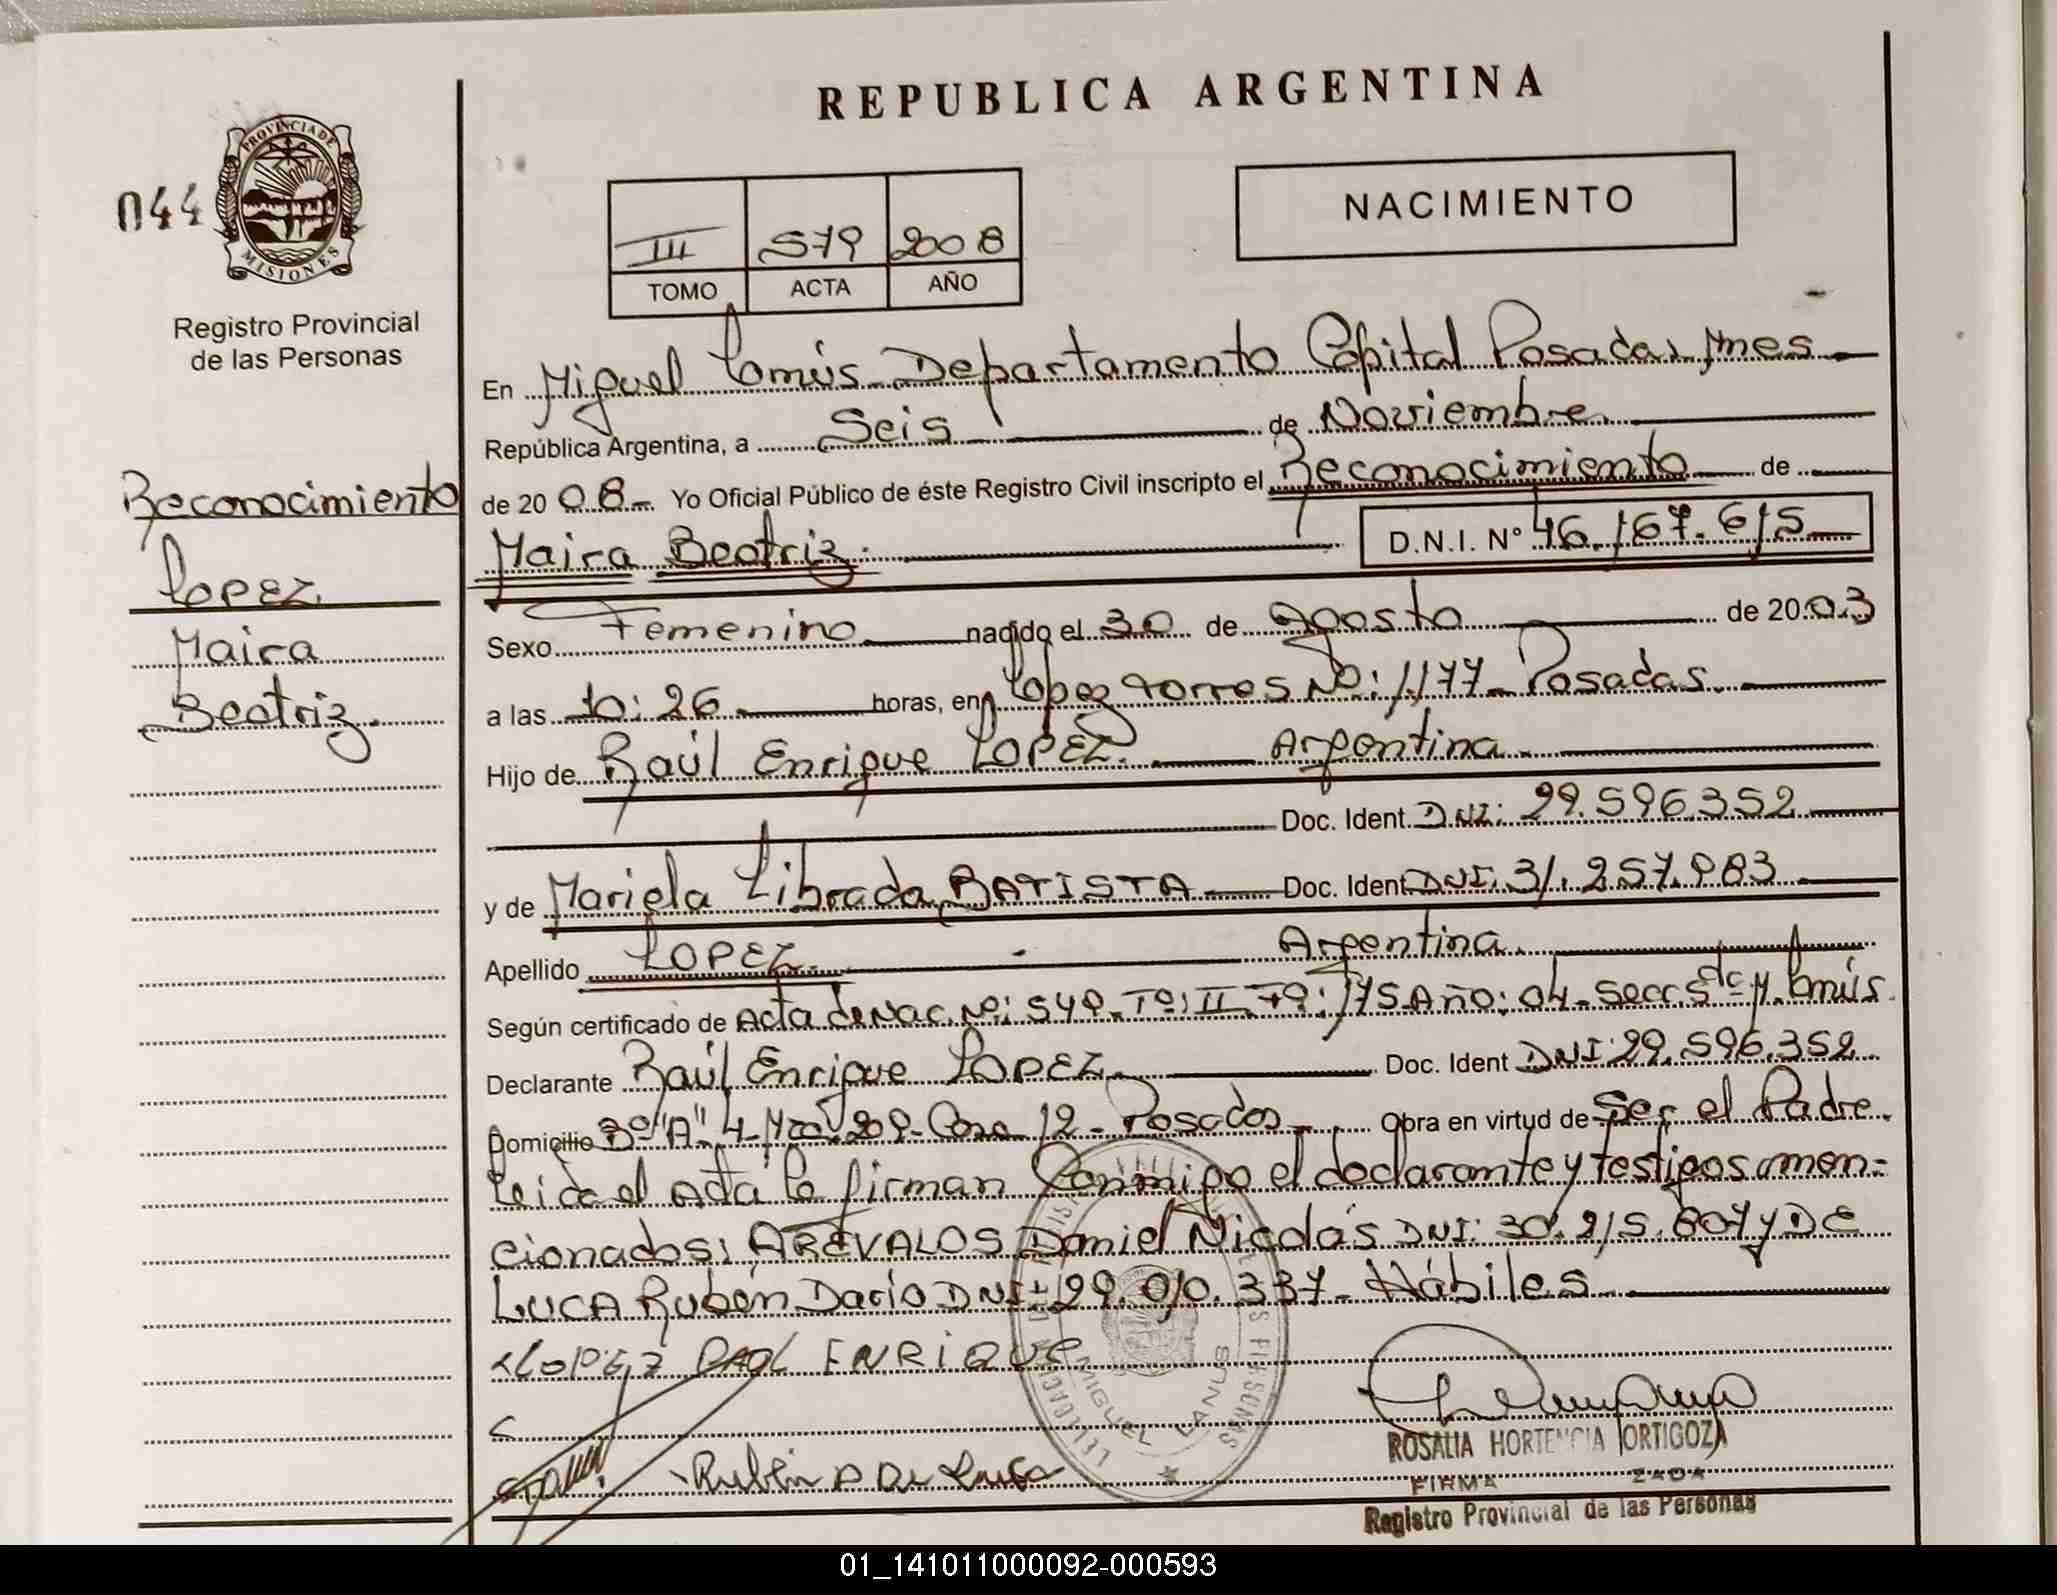 REPUBLICA ARGENTINA
PROVINCIA DE
MISIONES
044
Registro Provincial
de las Personas
III 579 2008
TOMO ACTA AÑO
NACIMIENTO
En Miguel Lanús Departamento Capital Posadas Mnes
República Argentina, a Seis de Noviembre
de 20 08 Yo Oficial Público de éste Registro Civil inscripto el Reconocimiento de
Maira Beatriz D.N.I. Nº 46.167.615
Reconocimiento
LOPEZ
Maira
Beatriz
Sexo Femenino nacido el 30 de Agosto de 2003
a las 10:26 horas, en Lopez Torres Nº: 1177 Posadas
Hijo de Raúl Enrique LOPEZ Argentina
Doc. Ident. DNI: 29.596.352
y de Mariela Librada BATISTA Doc. Ident DNI: 31.257.983
Apellido LOPEZ Argentina
Según certificado de Acta de Nac. Nº: 549 Tº: II Fº: 175 Año: 04 Secc 5ta M. Lanús
Declarante Raúl Enrique LOPEZ Doc. Ident DNI: 29.596.352
Domicilio Bº "A" 4 Mza 209 Casa 12 Posadas Obra en virtud de Ser el Padre
Leida el Acta la firman Conmigo el declarante y testigos men=
cionados: AREVALOS Daniel Nicolás DNI: 30.215.807 y DE
LUCA Rubén Dario DNI: 29.010.337 Hábiles
LOPEZ RAUL ENRIQUE
Rubén D De Luca
MIGUEL LANUS
ROSALIA HORTENCIA ORTIGOZA
FIRMA
Registro Provincial de las Personas
01_141011000092-000593